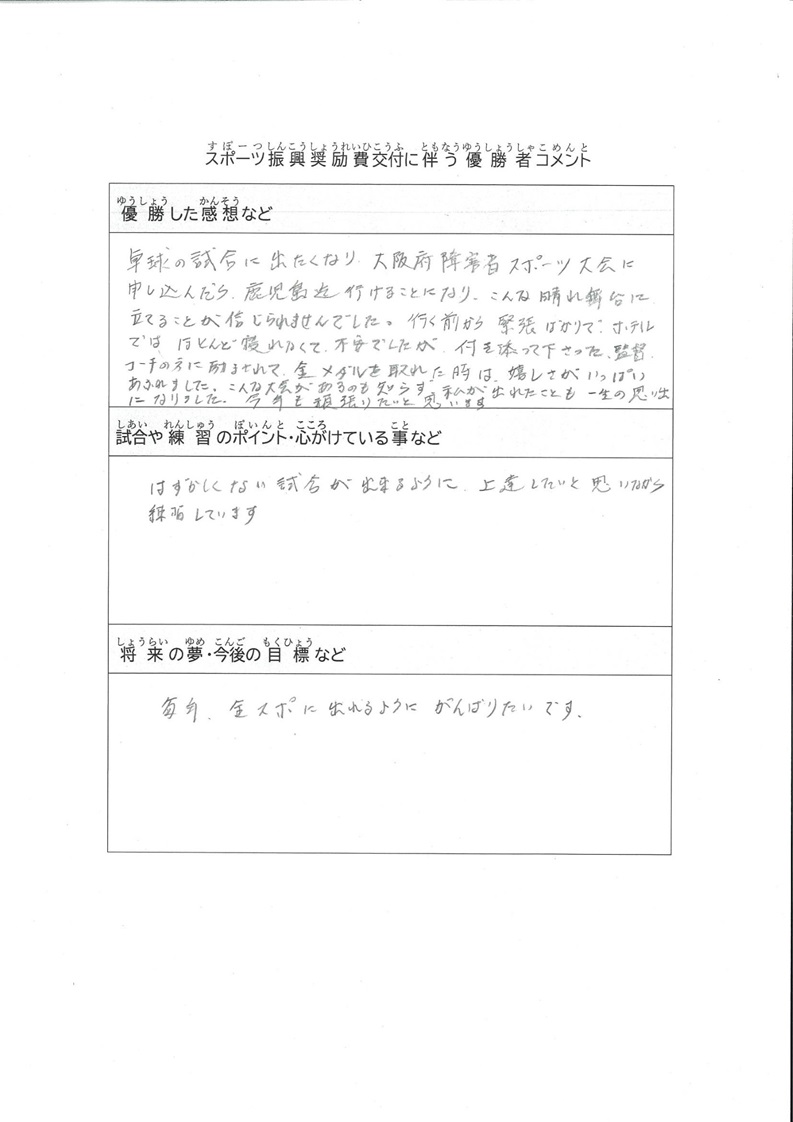 すぽーつしんこうしょうれいひこうふ ともなうゆうしょうしゃこめんと
スポーツ振興奨励費交付に伴う優勝者コメント
ゆうしょう かんそう
優勝した感想など
卓球の試合に出たくなり、大阪府障害者スポーツ大会に
申し込んだら、鹿児島迄行けることになり、こんな晴れ舞台に
立てることが信じられませんでした。行く前から緊張ばかりで、ホテル
では ほとんど寝れなくて、不安でしたが、付き添って下さった、監督、
コーチの方に励まされて、金メダルを取れた時は、嬉しさがいっぱい
あふれました。こんな大会があるのも知らず、私が出れたことも一生の思い出
になりました。今年も頑張りたいと思います
しあい れんしゅう ぽいんと こころ こと
試合や練習のポイント・心がけている事など
はずかしくない試合が出来るように、上達したいと思いながら
練習しています
しょうらい ゆめ こんご もくひょう
将来の夢・今後の目標など
毎年、全スポに出れるように がんばりたいです。